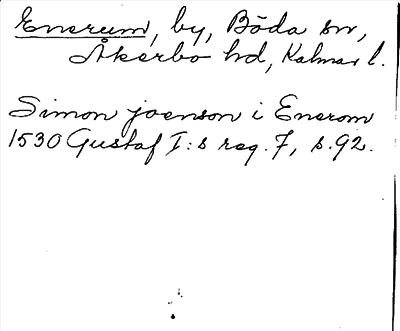 Enerum, by, Böda sn,
Åkerbo hd, Kalmar l.
Simon joenson i Enerom
1530 Gustaf I:s reg. 7, s. 92.